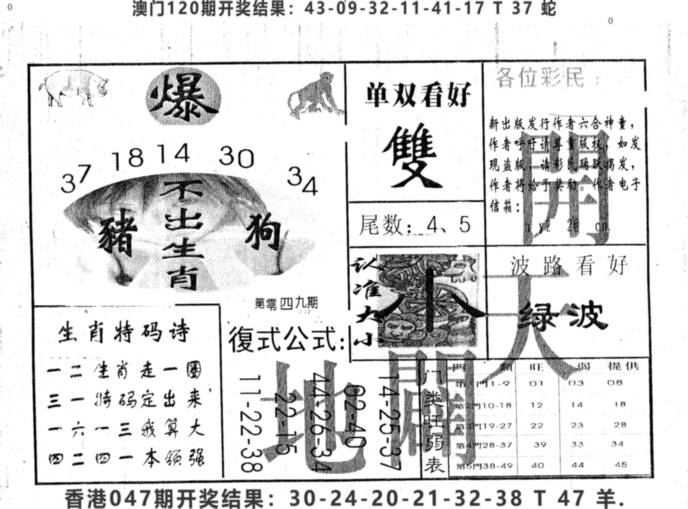 澳门120期开奖结果：43-09-32-11-41-17 T 37 蛇
爆
37 18 14 30 34
不出生肖
豬
狗
第零四九期
单双看好
雙
尾数：4、5
各位彩民：
新出版发行作者六合神童，
作者呼吁请尊重版权，如发
现盗版，请彩民踊跃揭发，
作者将给予奖励。作者电子
信箱：
開
认准大小
小
波路看好
绿波
天
生肖特码诗
一二生肖走一圈
三一特码定出来
一六一三我算大
四二四一本领强
復式公式：
11-22-38
22-15
44-26-34
02-40
14-25-37
地
闢
门类旺弱表
門類 旺 弱 提供
第1門1-9 01 03 08
第2門10-18 12 14 18
第3門19-27 22 23 28
第4門28-37 39 33 34
第5門38-49 40 44 45
香港047期开奖结果：30-24-20-21-32-38 T 47 羊.